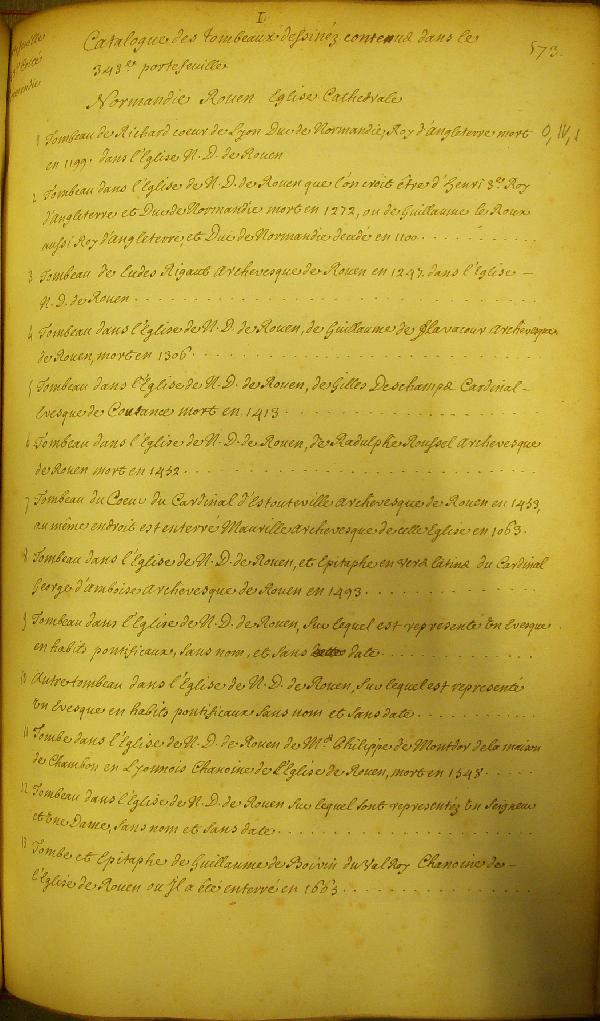 I
Catalogue des tombeaux dessinéz contenus dans le
573.
343.e portefeuille
Normandie Rouen Eglise Cathedrale
1 Tombeau de Richard coeur de Lyon Duc de Normandie, Roy d'Angleterre mort
en 1199. dans l'Eglise N. D. de Rouen
2 Tombeau dans l'Eglise de N. D. de Rouen que l'on croit être d'Henri 3.e Roy
d'angleterre et Duc de Normandie mort en 1272, ou de Guillaume le Roux
aussi Roy d'Angleterre et Duc de Normandie decedé en 1100.
3 Tombeau de Eudes Rigaut Archevesque de Rouen en 1247. dans l'Eglise
N. D. de Rouen
4 Tombeau dans l'Eglise de N. D. de Rouen, de Guillaume de Flavacour Archevesque
de Rouen, mort en 1306.
5 Tombeau dans l'Eglise de N. D. de Rouen, de Gilles Deschamps Cardinal
Evesque de Coutance mort en 1413
6 Tombeau dans l'Eglise de N. D. de Rouen, de Radulphe Roussel Archevesque
de Rouen mort en 1452.
7 Tombeau du Coeur du Cardinal d'Estouteville Archevesque de Rouen en 1453,
au même endroit est enterré Maurille Archevesque de cette Eglise en 1063.
8 Tombeau dans l'Eglise de N. D. de Rouen, et Epitaphe en vers latins du Cardinal
George d'Amboise Archevesque de Rouen en 1493.
9 Tombeau dans l'Eglise de N. D. de Rouen, sur lequel est representé un Evesque
en habits pontificaux, sans nom, et sans date
10 Autre tombeau dans l'Eglise de N. D. de Rouen, sur lequel est representé
un Evesque en habits pontificaux sans nom et sans date
11 Tombe dans l'Eglise de N. D. de Rouen de M.re Philippe de Montdor de la maison
de Chambou en Lyonnois Chanoine de l'Eglise de Rouen, mort en 1548
12 Tombeau dans l'Eglise de N. D. de Rouen sur lequel sont representéz un Seigneur
et une Dame, sans nom et sans date
13 Tombe et Epitaphe de Guillaume de Boivin du Val Roy Chanoine de
l'Eglise de Rouen ou Jl a été enterré en 1663